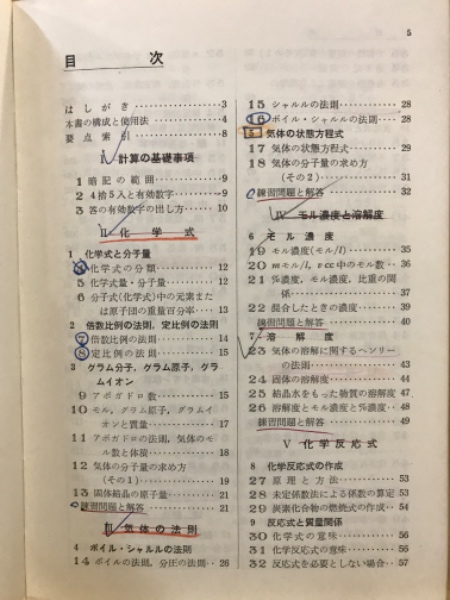 5
目次
はしがき…………3
本書の構成と使用法…………4
要点索引…………8
Ⅰ 計算の基礎事項
1 暗記の範囲…………9
2 4捨5入と有効数字…………9
3 答の有効数字の出し方…………10
Ⅱ 化学式
1 化学式と分子量
4 化学式の分類…………12
5 化学式量・分子量…………12
6 分子式(化学式)中の元素また
は原子団の重量百分率…………13
2 倍数比例の法則,定比例の法則
7 倍数比例の法則…………14
8 定比例の法則…………15
3 グラム分子,グラム原子,グラ
ムイオン
9 アボガドロ数…………15
10 モル,グラム原子,グラムイ
オンと質量…………17
11 アボガドロの法則,気体のモ
ル数と体積…………18
12 気体の分子量の求め方
(その1)…………19
13 固体結晶の原子量…………21
練習問題と解答…………21
Ⅲ 気体の法則
4 ボイル・シャルルの法則
14 ボイルの法則,分圧の法則…26
15 シャルルの法則…………28
16 ボイル・シャルルの法則…………28
5 気体の状態方程式
17 気体の状態方程式…………29
18 気体の分子量の求め方
(その2)…………31
練習問題と解答…………32
Ⅳ モル濃度と溶解度
6 モル濃度
19 モル濃度(モル/l)…………35
20 mモル/l,vcc中のモル数…36
21 %濃度,モル濃度,比重の関
係…………37
22 混合したときの濃度…………39
練習問題と解答…………40
7 溶解度
23 気体の溶解に関するヘンリー
の法則…………43
24 固体の溶解度…………44
25 結晶水をもった物質の溶解度 47
26 溶解度とモル濃度と%濃度…48
練習問題と解答…………49
Ⅴ 化学反応式
8 化学反応式の作成
27 原理と方法…………53
28 未定係数法による係数の算定 53
29 炭素化合物の燃焼式の作成…54
9 反応式と質量関係
30 化学式の意味…………56
31 化学反応式の意味…………56
32 反応式を必要としない場合…57